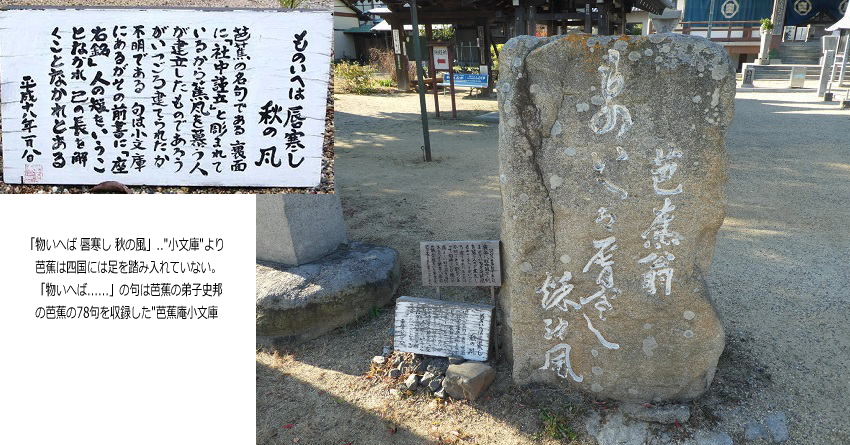 ものいへは 唇寒し
秋の風
芭蕉の名句である 裏面
に「社中謹立」と彫まれて
いるから蕉風を慕う人
が建立したものであろう
がいつごろ建てられたか
不明である 句は小文庫
にあるがその前書に「座
右銘 人の短をいうこ
となかれ 己の長を解
くことなかれとある
平成八年一月八日
「物いへば 唇寒し 秋の風」.."小文庫"より
芭蕉は四国には足を踏み入れていない。
「物いへば......」の句は芭蕉の弟子史邦
の芭蕉の78句を収録した"芭蕉庵小文庫
芭蕉翁
ものいへは唇寒し
秋の風